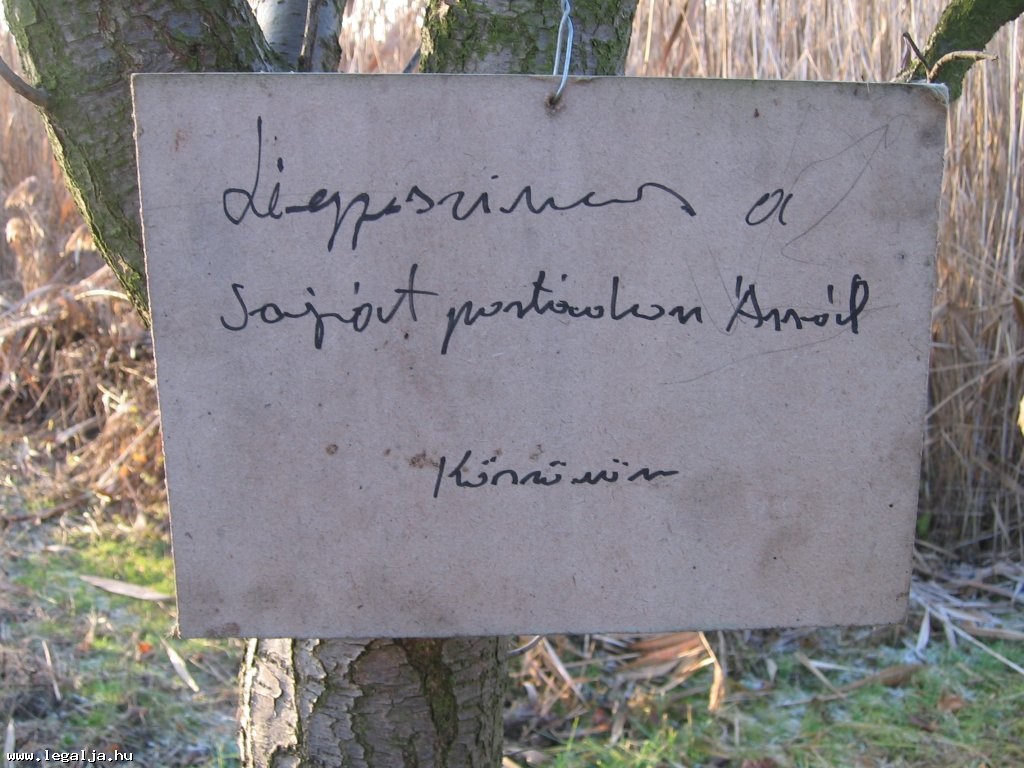 Légyszives a
saját portádon Ássál
Köszönöm
www.legalja.hu